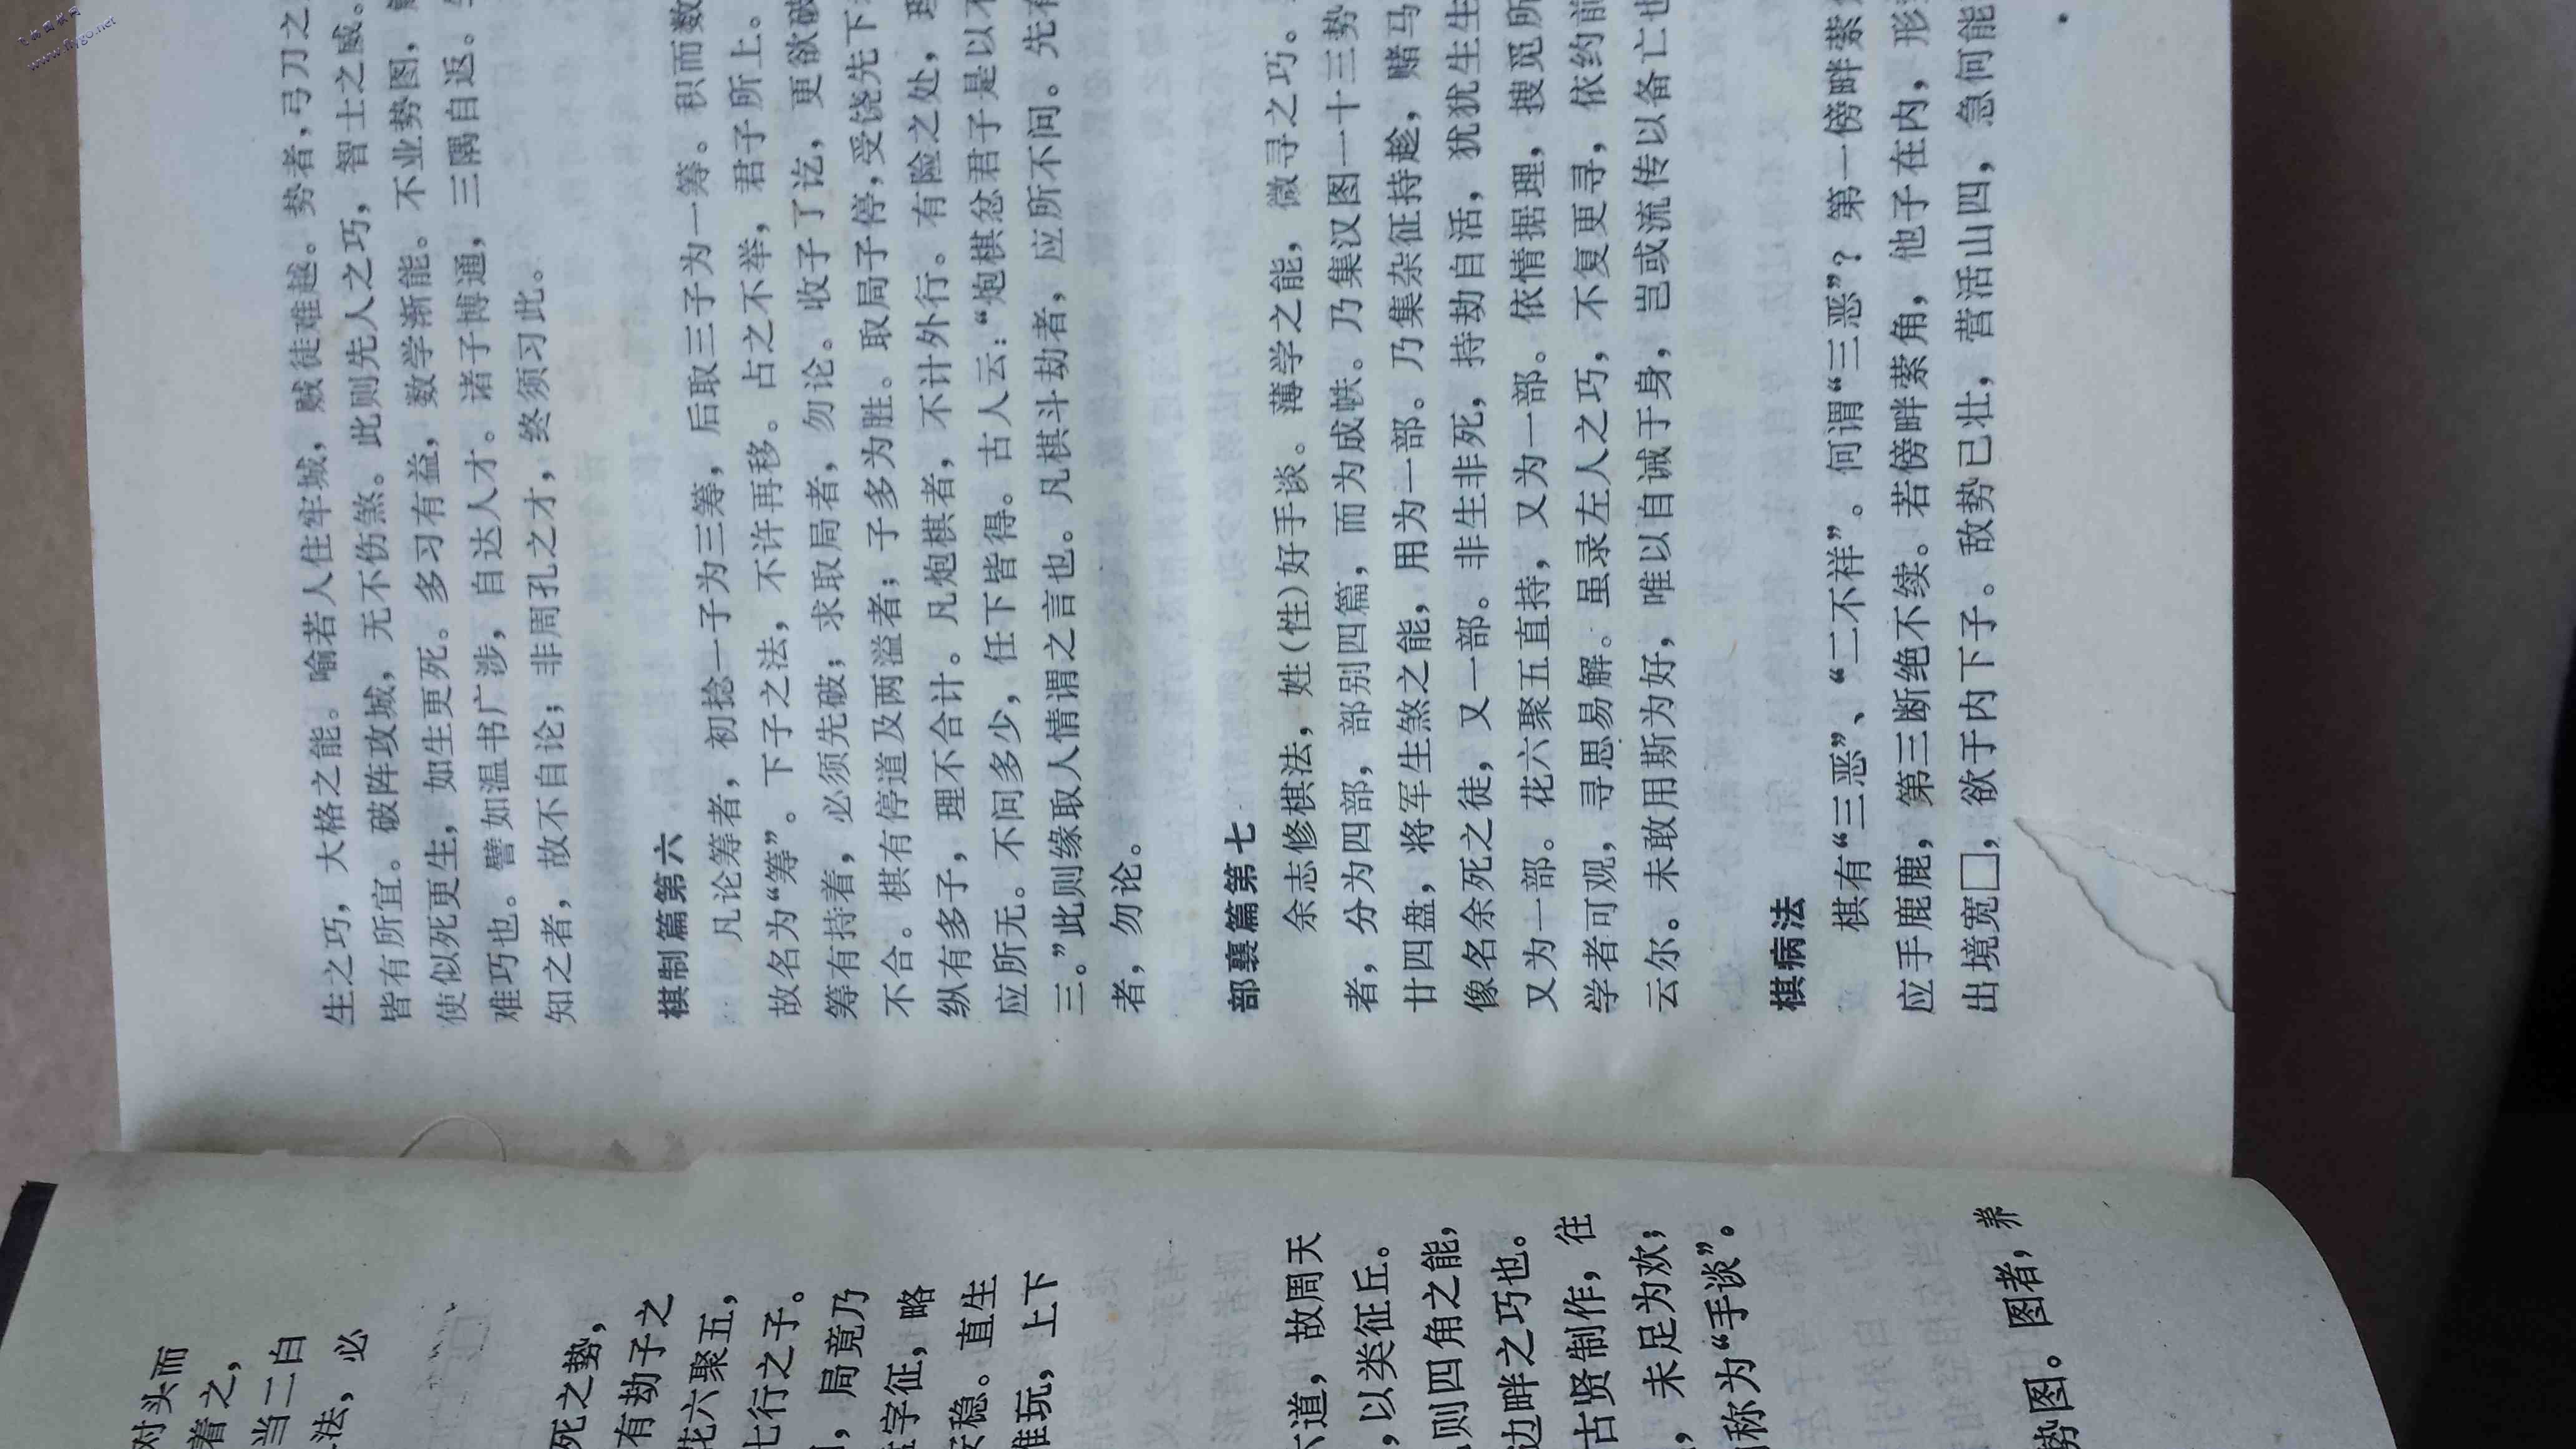 飞扬围棋网
www.flygo.net
对头而
着之，
当二白
法，必
死之势，
有劫子之
花六聚五，
七行之子。
，局竟乃
字征，略
安稳。直生
难玩，上下
六道，故周天
，以类征丘。
则四角之能，
边畔之巧也。
古贤制作，往
，未足为欢；
称为“手谈”。
势图。图者，养
生之巧，大格之能。喻若人住牢城，贼徒难越。势者，弓刀之
皆有所宜。破阵攻城，无不伤煞。此则先人之巧，智士之威。
使似死更生，如生更死。多习有益，数学渐能。不业势图，
难巧也。譬如温书广涉，自达人才。诸子博通，三隅自返。
知之者，故不自论；非周孔之才，终须习此。
棋制篇第六
凡论筹者，初捻一子为三筹，后取三子为一筹。积而数
故名为“筹”。下子之法，不许再移。占之不举，君子所上。
筹有持着，必须先破；求取局者，勿论。收子了讫，更欲破
不合。棋有停道及两溢者；子多为胜。取局子停，受饶先下
纵有多子，理不合计。凡炮棋者，不计外行。有险之处，理
应所无。不问多少，任下皆得。古人云：“炮棋忿君子是以不
三。”此则缘取人情谓之言也。凡棋斗劫者，应所不问。先有
者，勿论。
部襄篇第七
余志修棋法，姓(性)好手谈。薄学之能，微寻之巧。
者，分为四部，部别四篇，而为成帙。乃集汉图一十三势
廿四盘，将军生煞之能，用为一部。乃集杂征持趁，赌马
像名余死之徒，又一部。非生非死，持劫自活，犹犹生生
又为一部。花六聚五直持，又为一部。依情据理，搜觅所
学者可观，寻思易解。虽录左人之巧，不复更寻，依约前
云尔。未敢用斯为好，唯以自诫于身，岂或流传以备亡也
棋病法
棋有“三恶”、“二不祥”。何谓“三恶”？第一傍畔萦
应手鹿鹿，第三断绝不续。若傍畔萦角，他子在内，形
出境宽□，欲于内下子。敌势已壮，营活山四，急何能